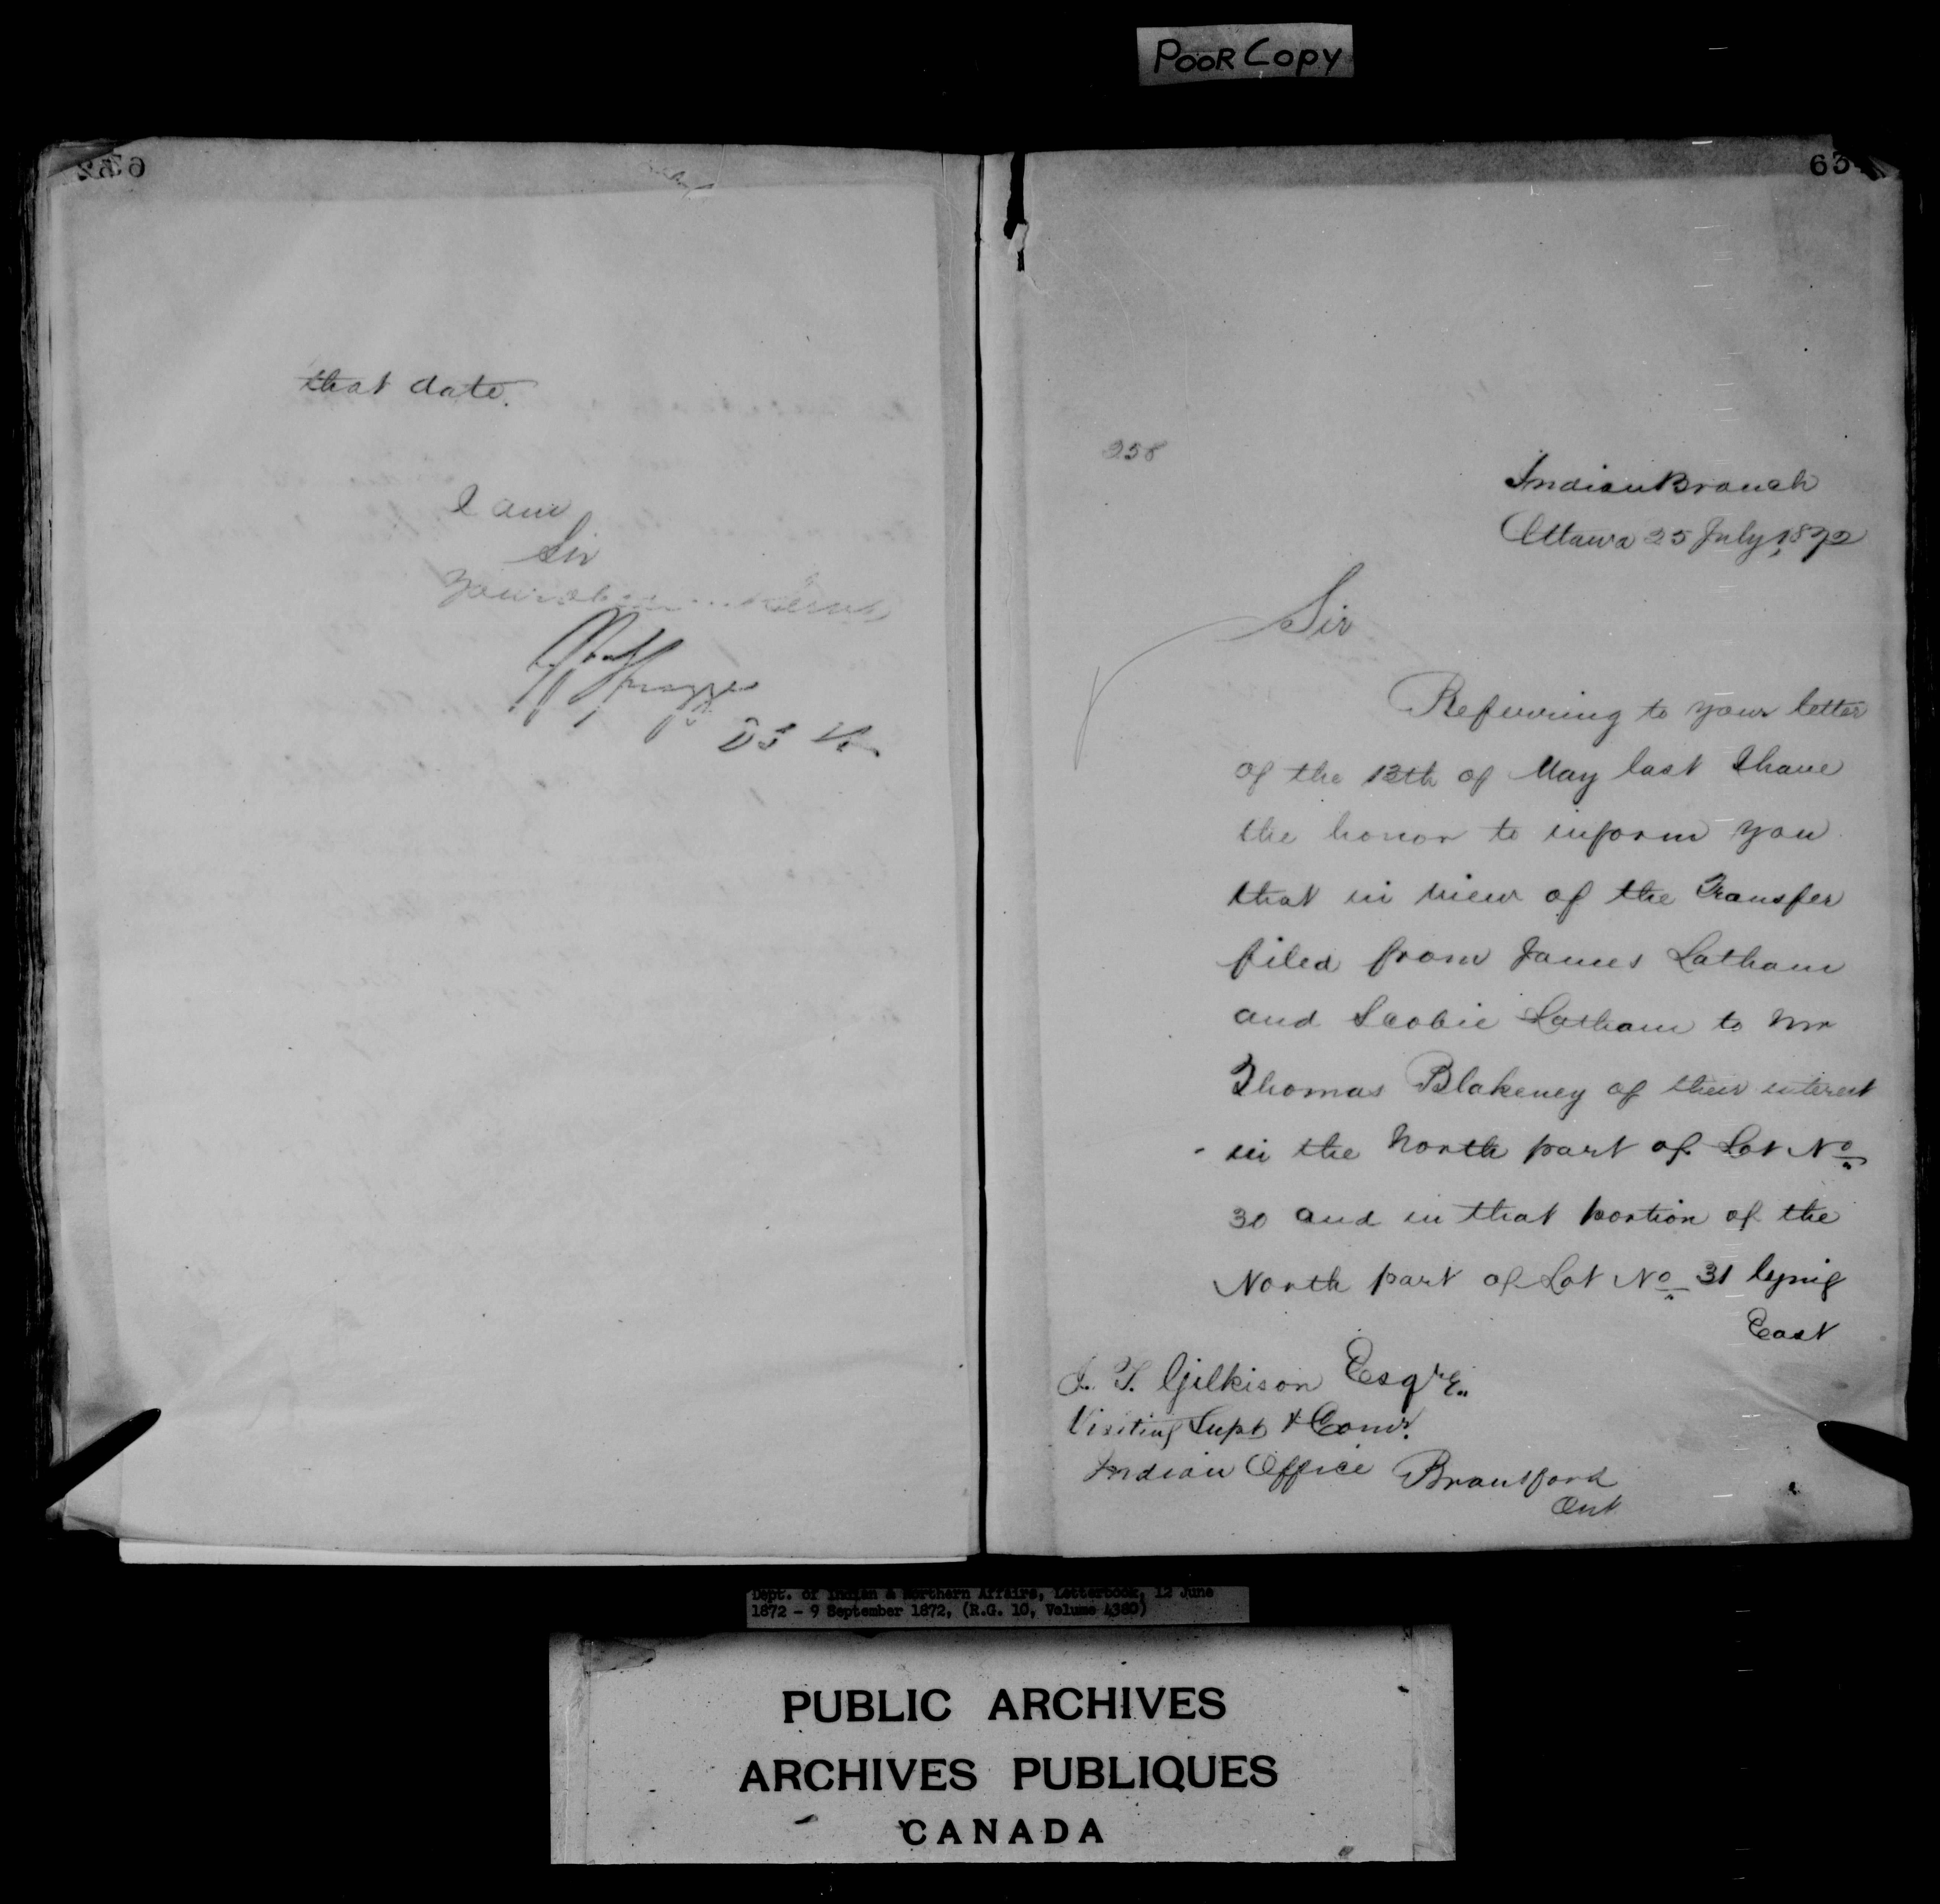 POOR COPY
that date.
I am
Sir
Your
D S
63
258
Indian Branch
Ottawa 25 July, 1872
Sir
Referring to your letter
of the 13th of May last I have
the honor to inform you
that in view of the Transfer
filed from James Latham
and Scobie Latham to Mr
Thomas Blakeney of their interest
in the North part of Lot No
30 and in that portion of the
North part of Lot No 31 lying
East
J. T. Gilkison Esqre.
Visiting Supt & Comr.
Indian Office Brantford
Ont
Dept. of Indian & Northern Affairs, Letterbook, 12 June
1872 - 9 September 1872, (R.G. 10, Volume 4380)
PUBLIC ARCHIVES
ARCHIVES PUBLIQUES
CANADA